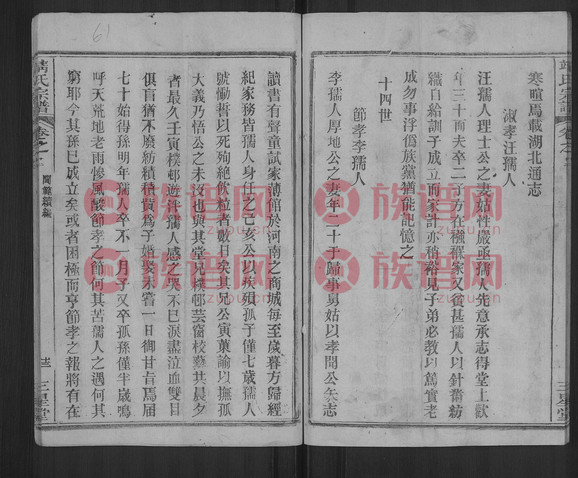 寒暄馬載湖北通志
淑孝汪孺人
汪孺人理士公之妻姑性嚴亟孺人先意承志得堂上歡
年三十而夫卒二子方在襁褓家又奇甚孺人以針黹紡
織自給訓子成立而家計亦稍裕見子弟必教以篤實老
成勿事浮僞族黨猶能記憶之
十四世
節孝李孺人
李孺人厚地公之妻年二十于歸事舅姑以孝聞公矢志
讀書有聲童試家薄館於河南之商城每至歲暮方歸經
紀家務皆孺人身任之己亥公以疾殞孤子僅七歲孺人
號慟誓以死殉絶飲粒者數日矣其兄公寅菓諭以撫孤
大義乃悟公之未沒也與其堂兄樸邨芸窗校藝共晨夕
者最久壬寅樸邨遊汴孺人感之哭不已淚盡泣血雙目
俱盲猶不廢紡績積貲爲子婚娶未嘗一日御甘旨焉届
七十始得孫明年孺人卒不一月子又卒孤孫僅半歲鳴
呼天荒地老雨慘風酸節孝之節何其苦孺人之遇何其
窮耶今其孫已成立矣或者困極而亨節孝之報將有在
靖氏宗譜
卷之二
聞範續編
廿二
三星堂
61
族譜网
zupu.cn